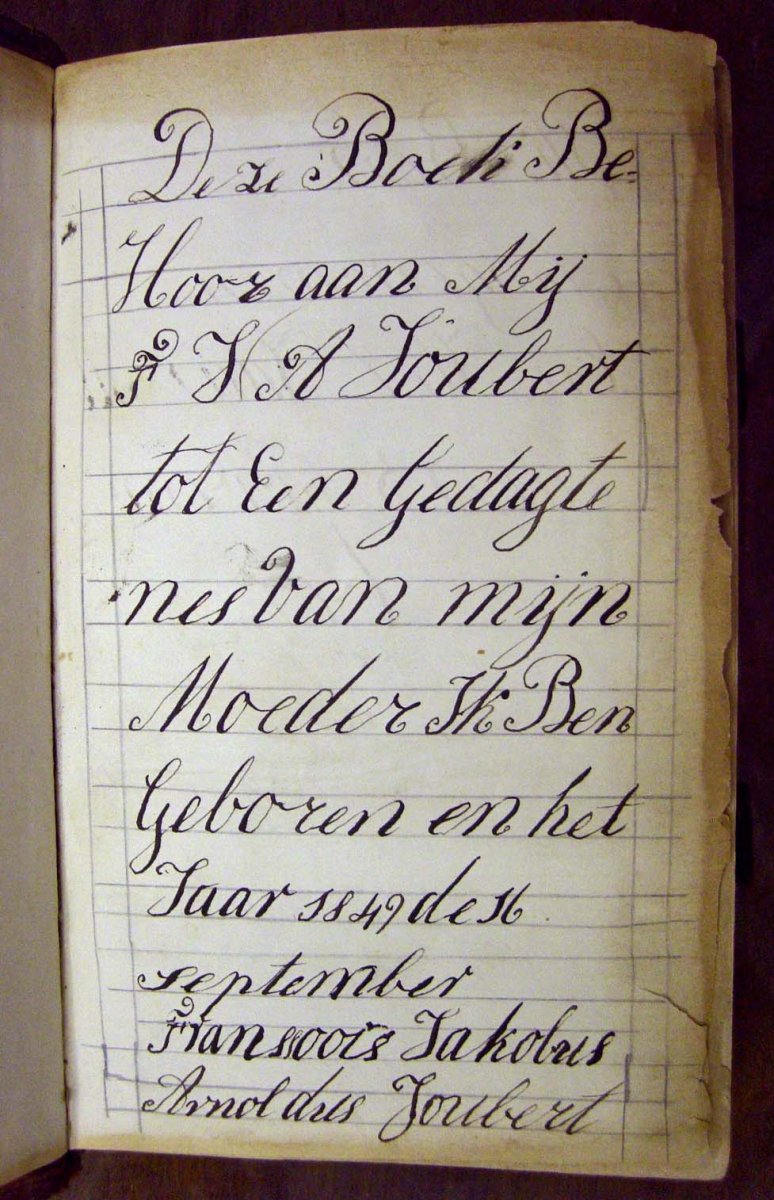 Deze Boek Be-
Hoor aan Mij
F J A Joubert
tot Een Gedagte
nes Van mijn
Moeder Ik Ben
Geboren en het
Jaar 1849 de 16
september
Fransoois Jakobus
Arnoldus Joubert